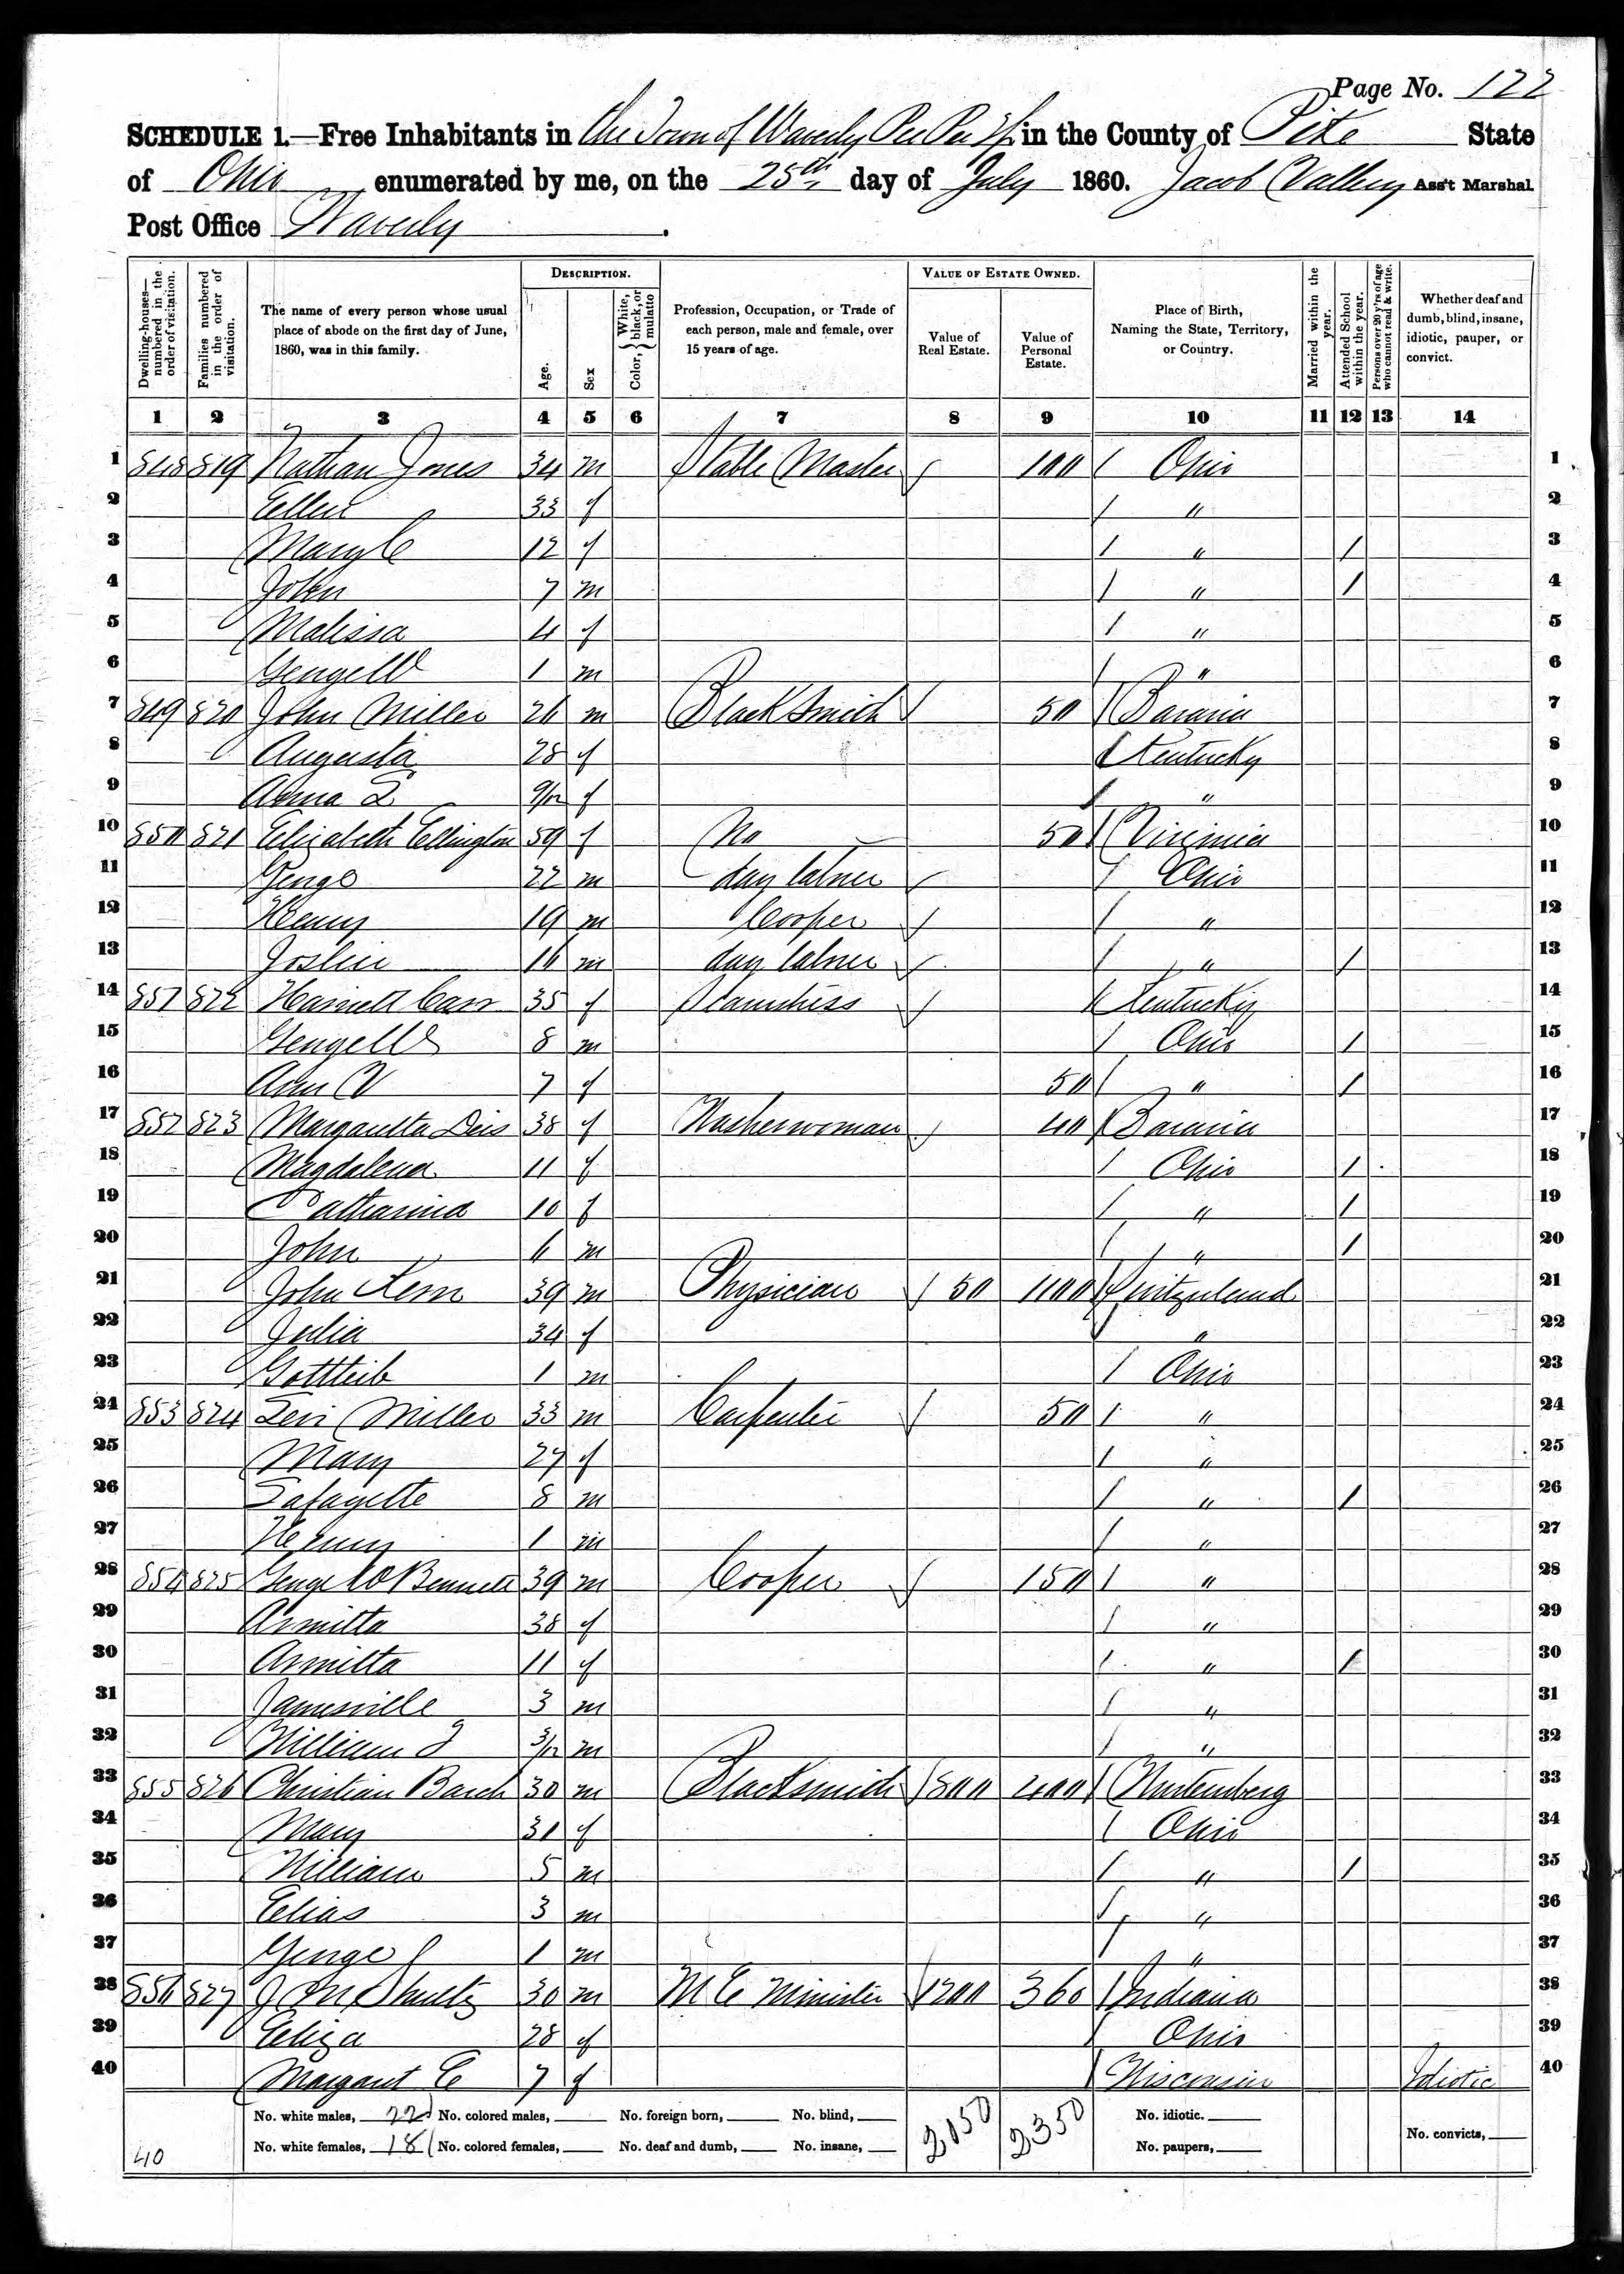 Page No. 122
SCHEDULE 1.—Free Inhabitants in the Town of Waverly Pee Pee Tp in the County of Pike State
of Ohio enumerated by me, on the 25th day of July 1860. Jacob Vallery Ass't Marshal.
Post Office Waverly.
Dwelling-houses—numbered in the order of visitation.
Families numbered in the order of visitation.
The name of every person whose usual place of abode on the first day of June, 1860, was in this family.
DESCRIPTION.
Age.
Sex
Color, White, black, or mulatto
Profession, Occupation, or Trade of each person, male and female, over 15 years of age.
VALUE OF ESTATE OWNED.
Value of Real Estate.
Value of Personal Estate.
Place of Birth, Naming the State, Territory, or Country.
Married within the year.
Attended School within the year.
Persons over 20 y'rs of age who cannot read & write.
Whether deaf and dumb, blind, insane, idiotic, pauper, or convict.
1 2 3 4 5 6 7 8 9 10 11 12 13 14
1 848 819 Nathan Jones 34 m Stable Master 100 / Ohio 1
2 Ellen 33 f / " 2
3 Mary C 12 f / " / 3
4 John 7 m / " / 4
5 Malissa 4 f / " 5
6 George W 1 m / " 6
7 849 820 John Miller 26 m Black Smith 50 / Bavaria 7
8 Augusta 28 f / Kentucky 8
9 Anna L 9/12 f / " 9
10 850 821 Elizabeth Ellington 59 f No 50 / Virginia 10
11 George 22 m day laborer / Ohio 11
12 Henry 19 m Cooper / " 12
13 Joslin 16 m day laborer / " / 13
14 851 822 Harriett Carr 35 f Seamstress / Kentucky 14
15 George W 8 m / Ohio / 15
16 Ann V 7 f 50 / " / 16
17 852 823 Margaretta Deis 38 f Washerwoman 40 / Bavaria 17
18 Magdalena 11 f / Ohio / 18
19 Catharina 10 f / " / 19
20 John 6 m / " / 20
21 John Kern 39 m Physician / 50 1100 / Switzerland 21
22 Julia 34 f / " 22
23 Gottlieb 1 m / Ohio 23
24 853 824 Levi Miller 33 m Carpenter 50 / " 24
25 Mary 27 f / " 25
26 Lafayette 8 m / " / 26
27 Henry 1 m / " 27
28 854 825 George W Bennett 39 m Cooper 150 / " 28
29 Armitta 38 f / " 29
30 Armitta 11 f / " / 30
31 Jamesville 3 m / " 31
32 William J 3/12 m / " 32
33 855 826 Christian Barch 30 m Blacksmith / 800 400 / Wurtemberg 33
34 Mary 31 f / Ohio 34
35 William 5 m / " / 35
36 Elias 3 m / " 36
37 George 1 m / " 37
38 856 827 J M Shultz 30 m M E Minister / 1200 360 / Indiana 38
39 Eliza 28 f / Ohio 39
40 Margaret E 7 f / Wisconsin Idiotic 40
No. white males, 22 No. colored males, No. foreign born, No. blind, 2050 2350 No. idiotic.
40 No. white females, 18 No. colored females, No. deaf and dumb, No. insane, No. paupers, No. convicts,